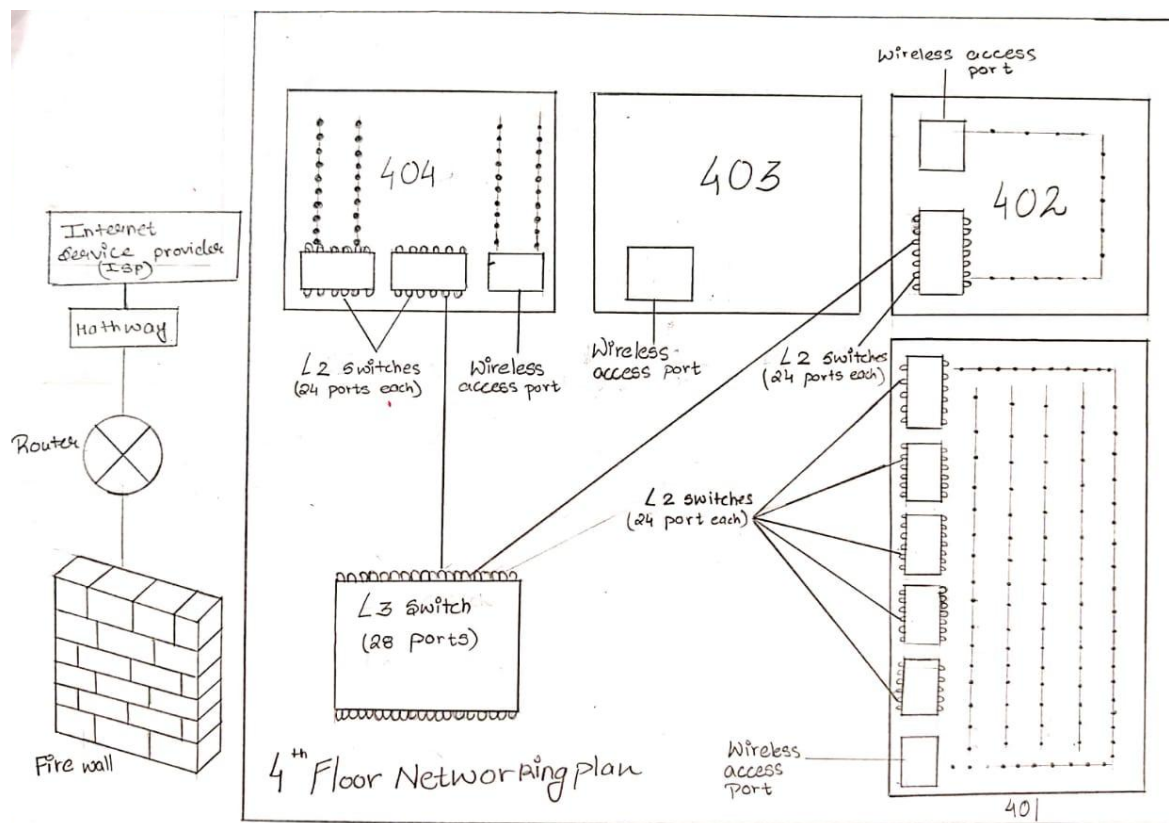 Internet
Service provider
(ISP)
Hathway
Router
Fire wall
404
L2 switches
(24 ports each)
Wireless
access port
403
Wireless
access port
Wireless access
port
402
L2 switches
(24 ports each)
L2 switches
(24 port each)
L3 switch
(28 ports)
Wireless
access
port
401
4th Floor Networking plan